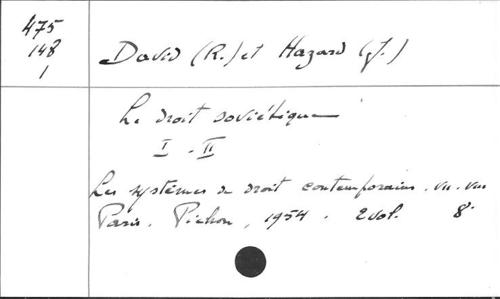 475
148
1
David (R.) et Hazard (J.)
Le droit soviétique
I - II
Les systèmes de droit contemporains. VII. VIII
Paris. Pichon, 1954. 2 vol. 8°